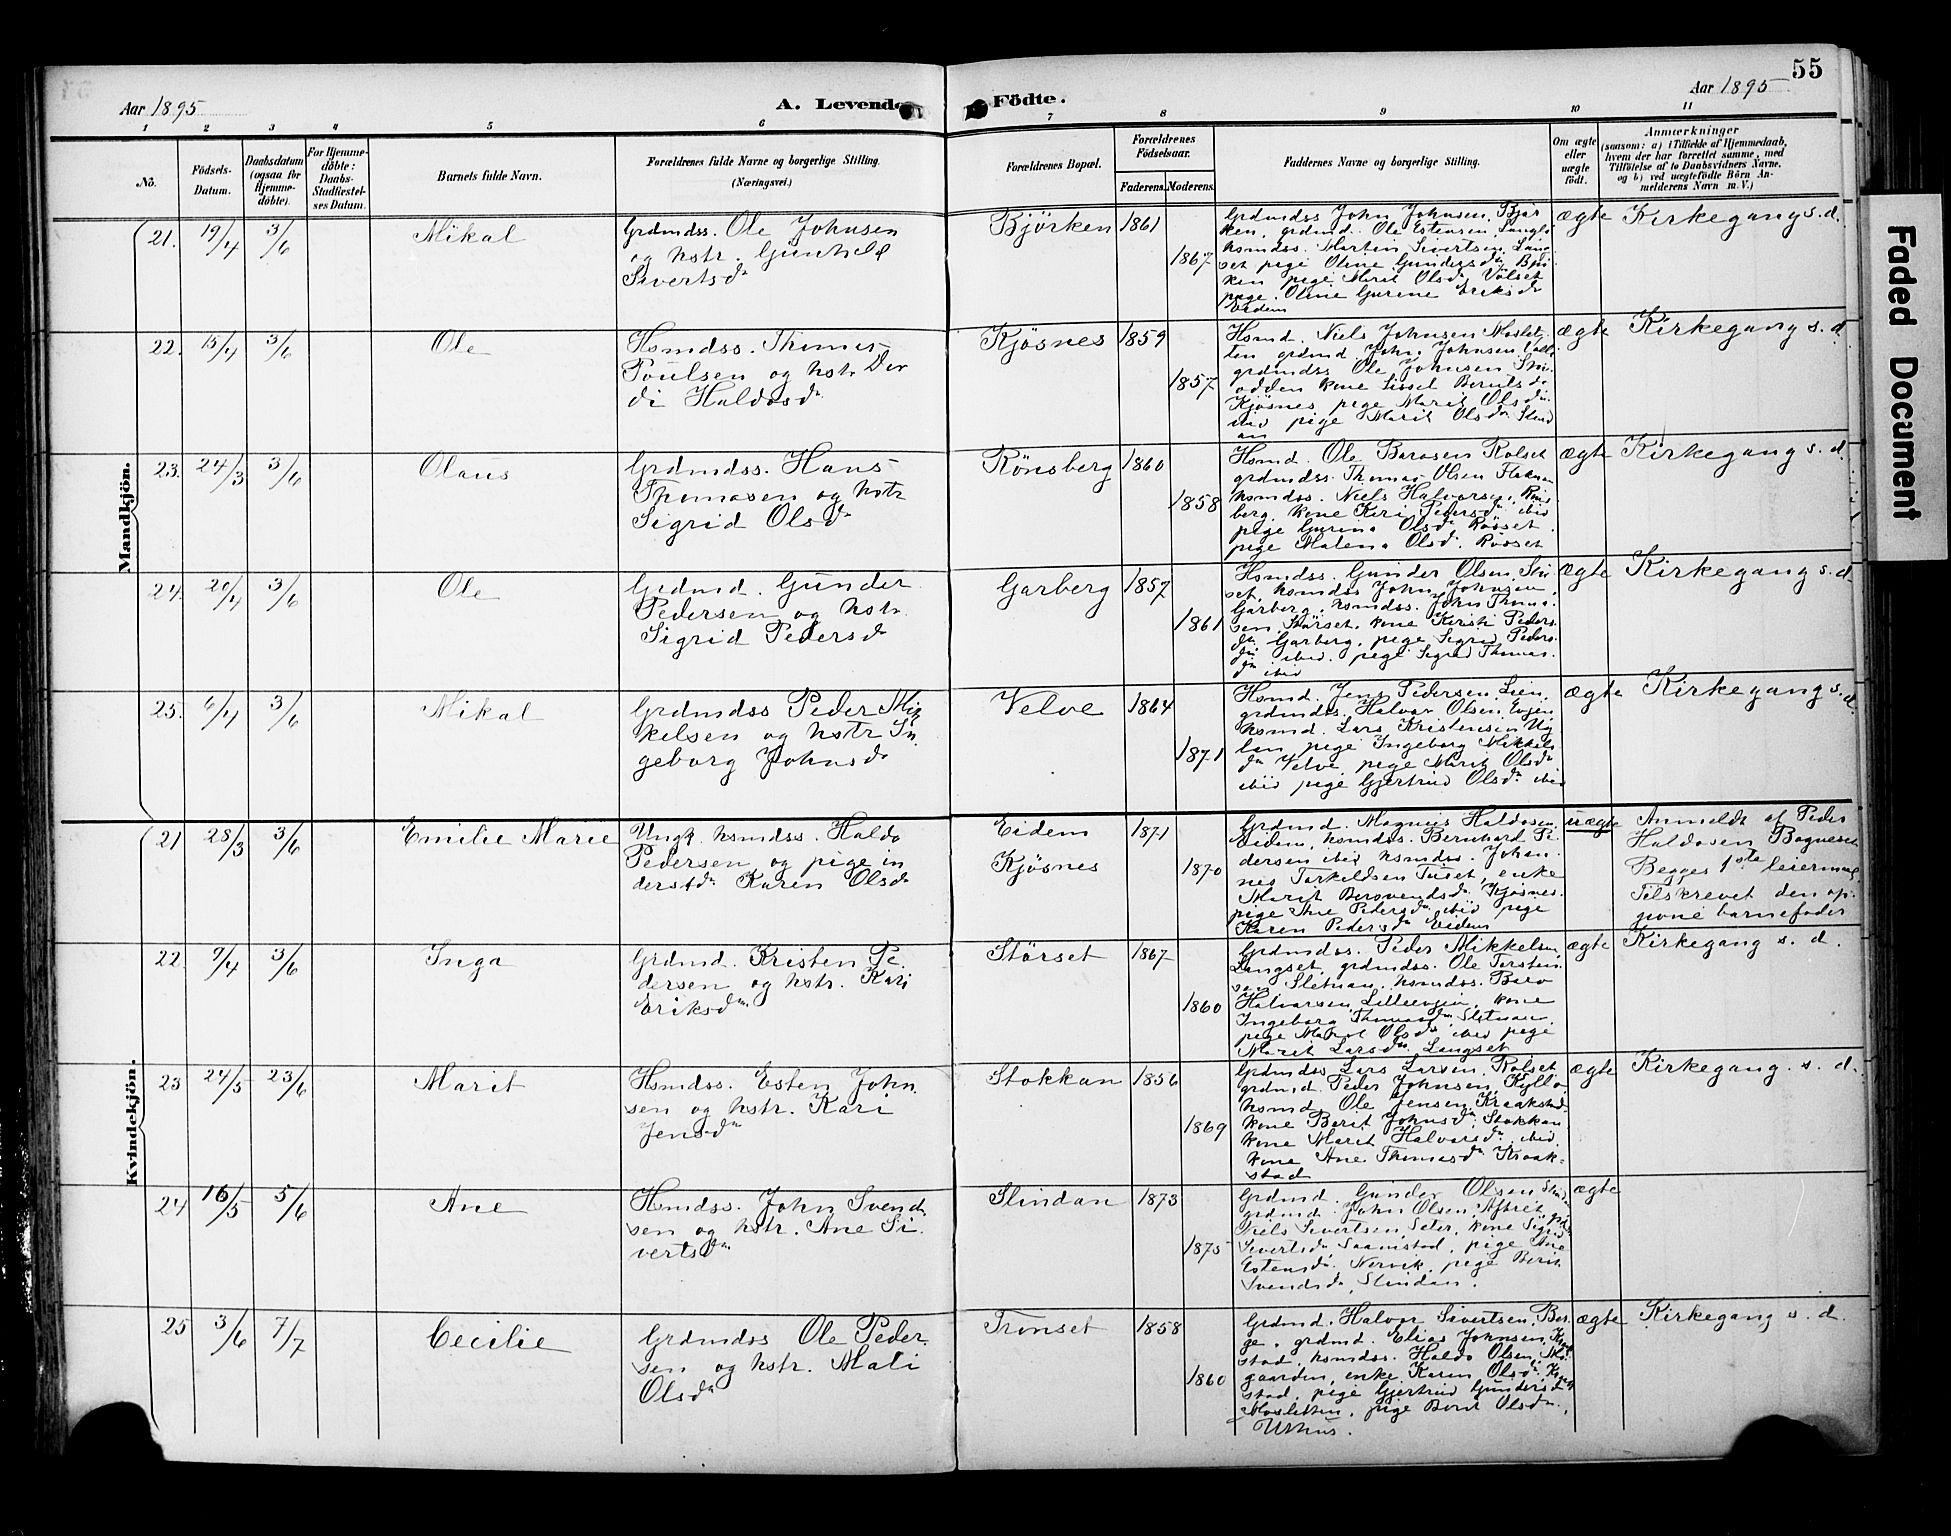 55
Aar 1895
A. Levende
Födte.
Aar 1895
1 2 3 4 5 6 7 8 9 10 11
No.
Födsels-
Datum.
Daabsdatum
(ogsaa for
Hjemme-
döbte).
For Hjemme-
döbte:
Daabs-
Stadfæstel-
ses Datum.
Barnets fulde Navn.
Forældrenes fulde Navne og borgerlige Stilling.
(Næringsvei.)
Forældrenes Bopæl.
Forældrenes
Födselsaar.
Faderens.
Moderens.
Faddernes Navne og borgerlige Stilling.
Om ægte
eller
uægte
födt.
Anmærkninger
(saasom: a) i Tilfælde af Hjemmedaab,
hvem der har forrettet samme, med
Tilföielse af to Daabsvidners Navne,
og b) ved uægtefödte Börn An-
melderens Navn m. V.)
Mandkjön.
21. 19/4 3/6
Mikal
Grdmdss. Ole Johnsen
og hstr. Gunhild
Sivertsdr
Björken
1861
1867
Grdmdss John Johnsen, Björ
ken, grdmd. Ole Estensen, Langli
hsmdss. Martin Sivertsen, Lang
set pige Oline Gundersdr, Björ
ken pige Marit Olsdr Volset
pige. Oline Gurine Eriksdr
Eidem
ægte
Kirkegang s. d.
22. 15/4 3/6
Ole
Hsmdss. Thomas
Poulsen og hstr Dor
di Haldosdr
Kjøsnes
1859
1857
Hsmd. Niels Johnsen Moslet-
ten grdmd. John Johnsen
grdmdss Ole Johnsen
odden kone Sissel Berntsdr
Kjøsnes pige Marit Olsdr
ibid pige Marit Olsdr Slind
an
ægte
Kirkegang s. d.
23. 24/3 3/6
Olaus
Grdmdss. Hans
Thomasen og hstr
Sigrid Olsdr
Rönsberg
1860
1858
Hsmd. Ole Barosen Rolset
grdmdss. Thomas Olsen
hsmdss. Niels Halvorsen, Röns
berg, kone Kari Pedersdr ibid
pige Gurina Olsdr Rösset
pige Malena Olsdr. Rösset
ægte
Kirkegang s. d.
24. 20/4 3/6
Ole
Grdmd. Gunder
Pedersen og hstr.
Sigrid Pedersdr
Garberg
1857
1861
Hsmdss. Gunder Olsen,
set, hsmdss John Johnsen,
Garberg, hsmdss. John Thoma-
sen Størset, kone Kirsti Peders
dr Garberg, pige Sigrid Peders
dr ibid. pige Sigrid Thomas.
dr ibid
ægte
Kirkegang s. d.
25. 6/4 3/6
Mikal
Grdmdss Peder Mik
kelsen og hstr In
geborg Johnsdr
Velve
1864
1871
Hsmd. Jens Pedersen Lien,
grdmdss. Halvor Olsen, Evjen
hsmd. Lars Kristensen Ug
lan, pige Ingeborg Mikkels
dr Velve pige Marit Olsdr
ibid pige Gjertrud Olsdr ibid
ægte
Kirkegang s. d.
Kvindekjön.
21 28/3 3/6
Emilie Marie
Ungk. hsmdss. Haldo
Pedersen og pige in
derstdr Karen Olsdr
Eidem
Kjøsnes
1871
1870
Grdmd. Magnus Haldosen,
Eidem, hsmdss. Bernhard Pe-
dersen ibid hsmdss. Johan-
nes Torkeldsen Tuset, enke
Marit Bersvendsdr Kjøsnes.
pige Ane Pedersdr ibid pige
Karen Pedersdr Eidem
uægte
Anmeldt af Peder
Haldosen Bogneset
Begges 1ste leiermaal.
Tilskrevet den op-
givne barnefader
22 9/4 3/6
Inga
Grdmd. Kristen Pe-
dersen og hstr. Kari
Eriksdr
Størset
1867
1860
Grdmdss. Peder Mikkelsen,
Langset, grdmdss. Ole Torsten-
sen Sletnan, hsmdss. Baro
Halvorsen Lilleevjen, kone
Ingeborg Thomasdr Sletnan.
pige Marit Olsdr ibid pige
Marit Larsdr Langset
ægte
Kirkegang s. d.
23 24/5 23/6
Marit
Hsmdss. Esten John
sen og hstr. Kari
Jensdr
Stokkan
1856
1869
Grdmdss Lars Larsen, Rolset
grdmd. Peder Johnsen, Kyllo
hsmd Ole Jensen Kraakstad-
kone Berit Johnsdr Stokkan
kone Marit Halvorsdr ibid
kone Ane Thomasdr Kraak-
stad
ægte
Kirkegang. s. d.
24 16/5 5/6
Ane
Hsmdss. John Svend
sen og hstr. Ane Si
vertsdr
Slindan
1873
1875
Grdmd. Gunder Olsen
grdmd. John Olsen, Aftret,
Niels Sivertsen, Seter, kone Sigrid
Sivertsdr, Saamstad, pige Ane
Estensdr. Nervik, pige Berit
Svendsdr, Slindan.
ægte
25 3/6 7/7
Cecilie
Grdmdss Ole Peder
sen og hstr. Mali
Olsdr
Trønset
1858
1860
Grdmd. Halvor Sivertsen, Ber
ge, grdmd. Elias Johnsen,
stad, hsmdss. Haldo Olsen, Mo
gaarden, enke Karen Olsdr,
stad, pige Gjertrud Gundersdr
Mosletten, pige Berit Olsdr,
Uthus.
ægte
Kirkegang s. d.
Faded Document